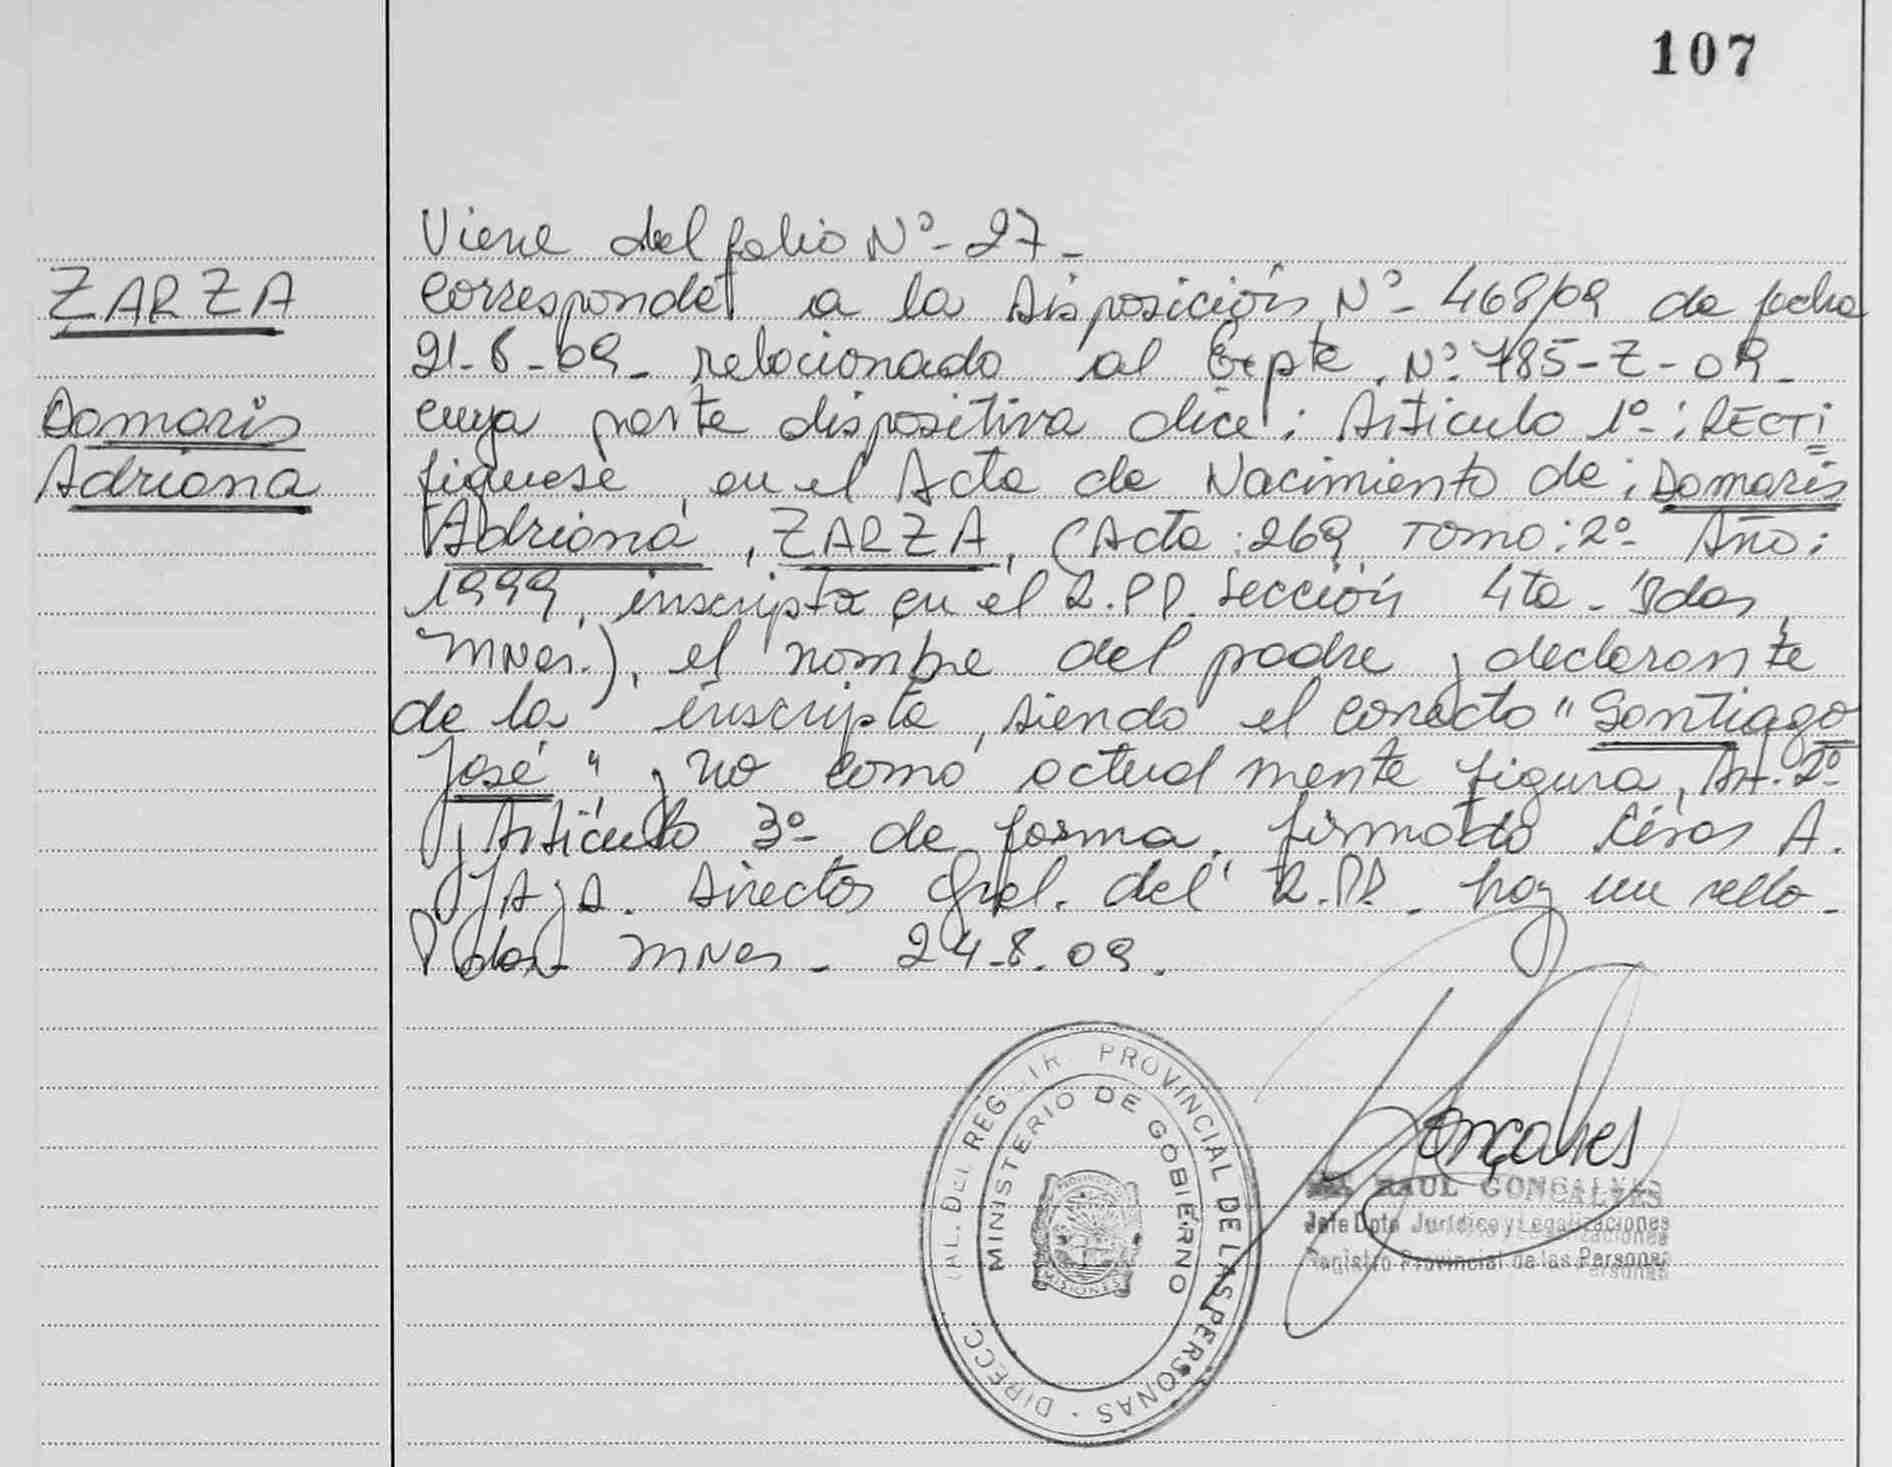 107
Viene del folio Nº- 27-
ZARZA
Corresponde a la Disposición Nº- 468/09 de fecha
21-8-09- relacionado al Expte. Nº 785-Z-09-
Damaris
cuya parte dispositiva dice: Artículo 1º-: RECTI
Adriana
fiquese, en el Acta de Nacimiento de: Damaris
Adriana, ZARZA, (Acta: 269, Tomo: 2º- Año:
1999, inscripta en el R.P.P. Sección 4ta- Pdas
MNes.), el nombre del padre y declarante
de la inscripta, siendo el correcto "Santiago
José" y no como actualmente figura, Art. 2º
y Artículo 3º- de forma. firmado César A.
JAJA. Director Gral. del R.P.P. hay un sello-
Pdas- MNes- 24-8-09.
DIRECC. GRAL. DEL REGISTR PROVINCIAL DE LAS PERSONAS
MINISTERIO DE GOBIERNO
MISIONES
Gonçalves
RAUL GONCALVES
Jefe Dpto Jurídico y Legalizaciones
Registro Provincial de las Personas